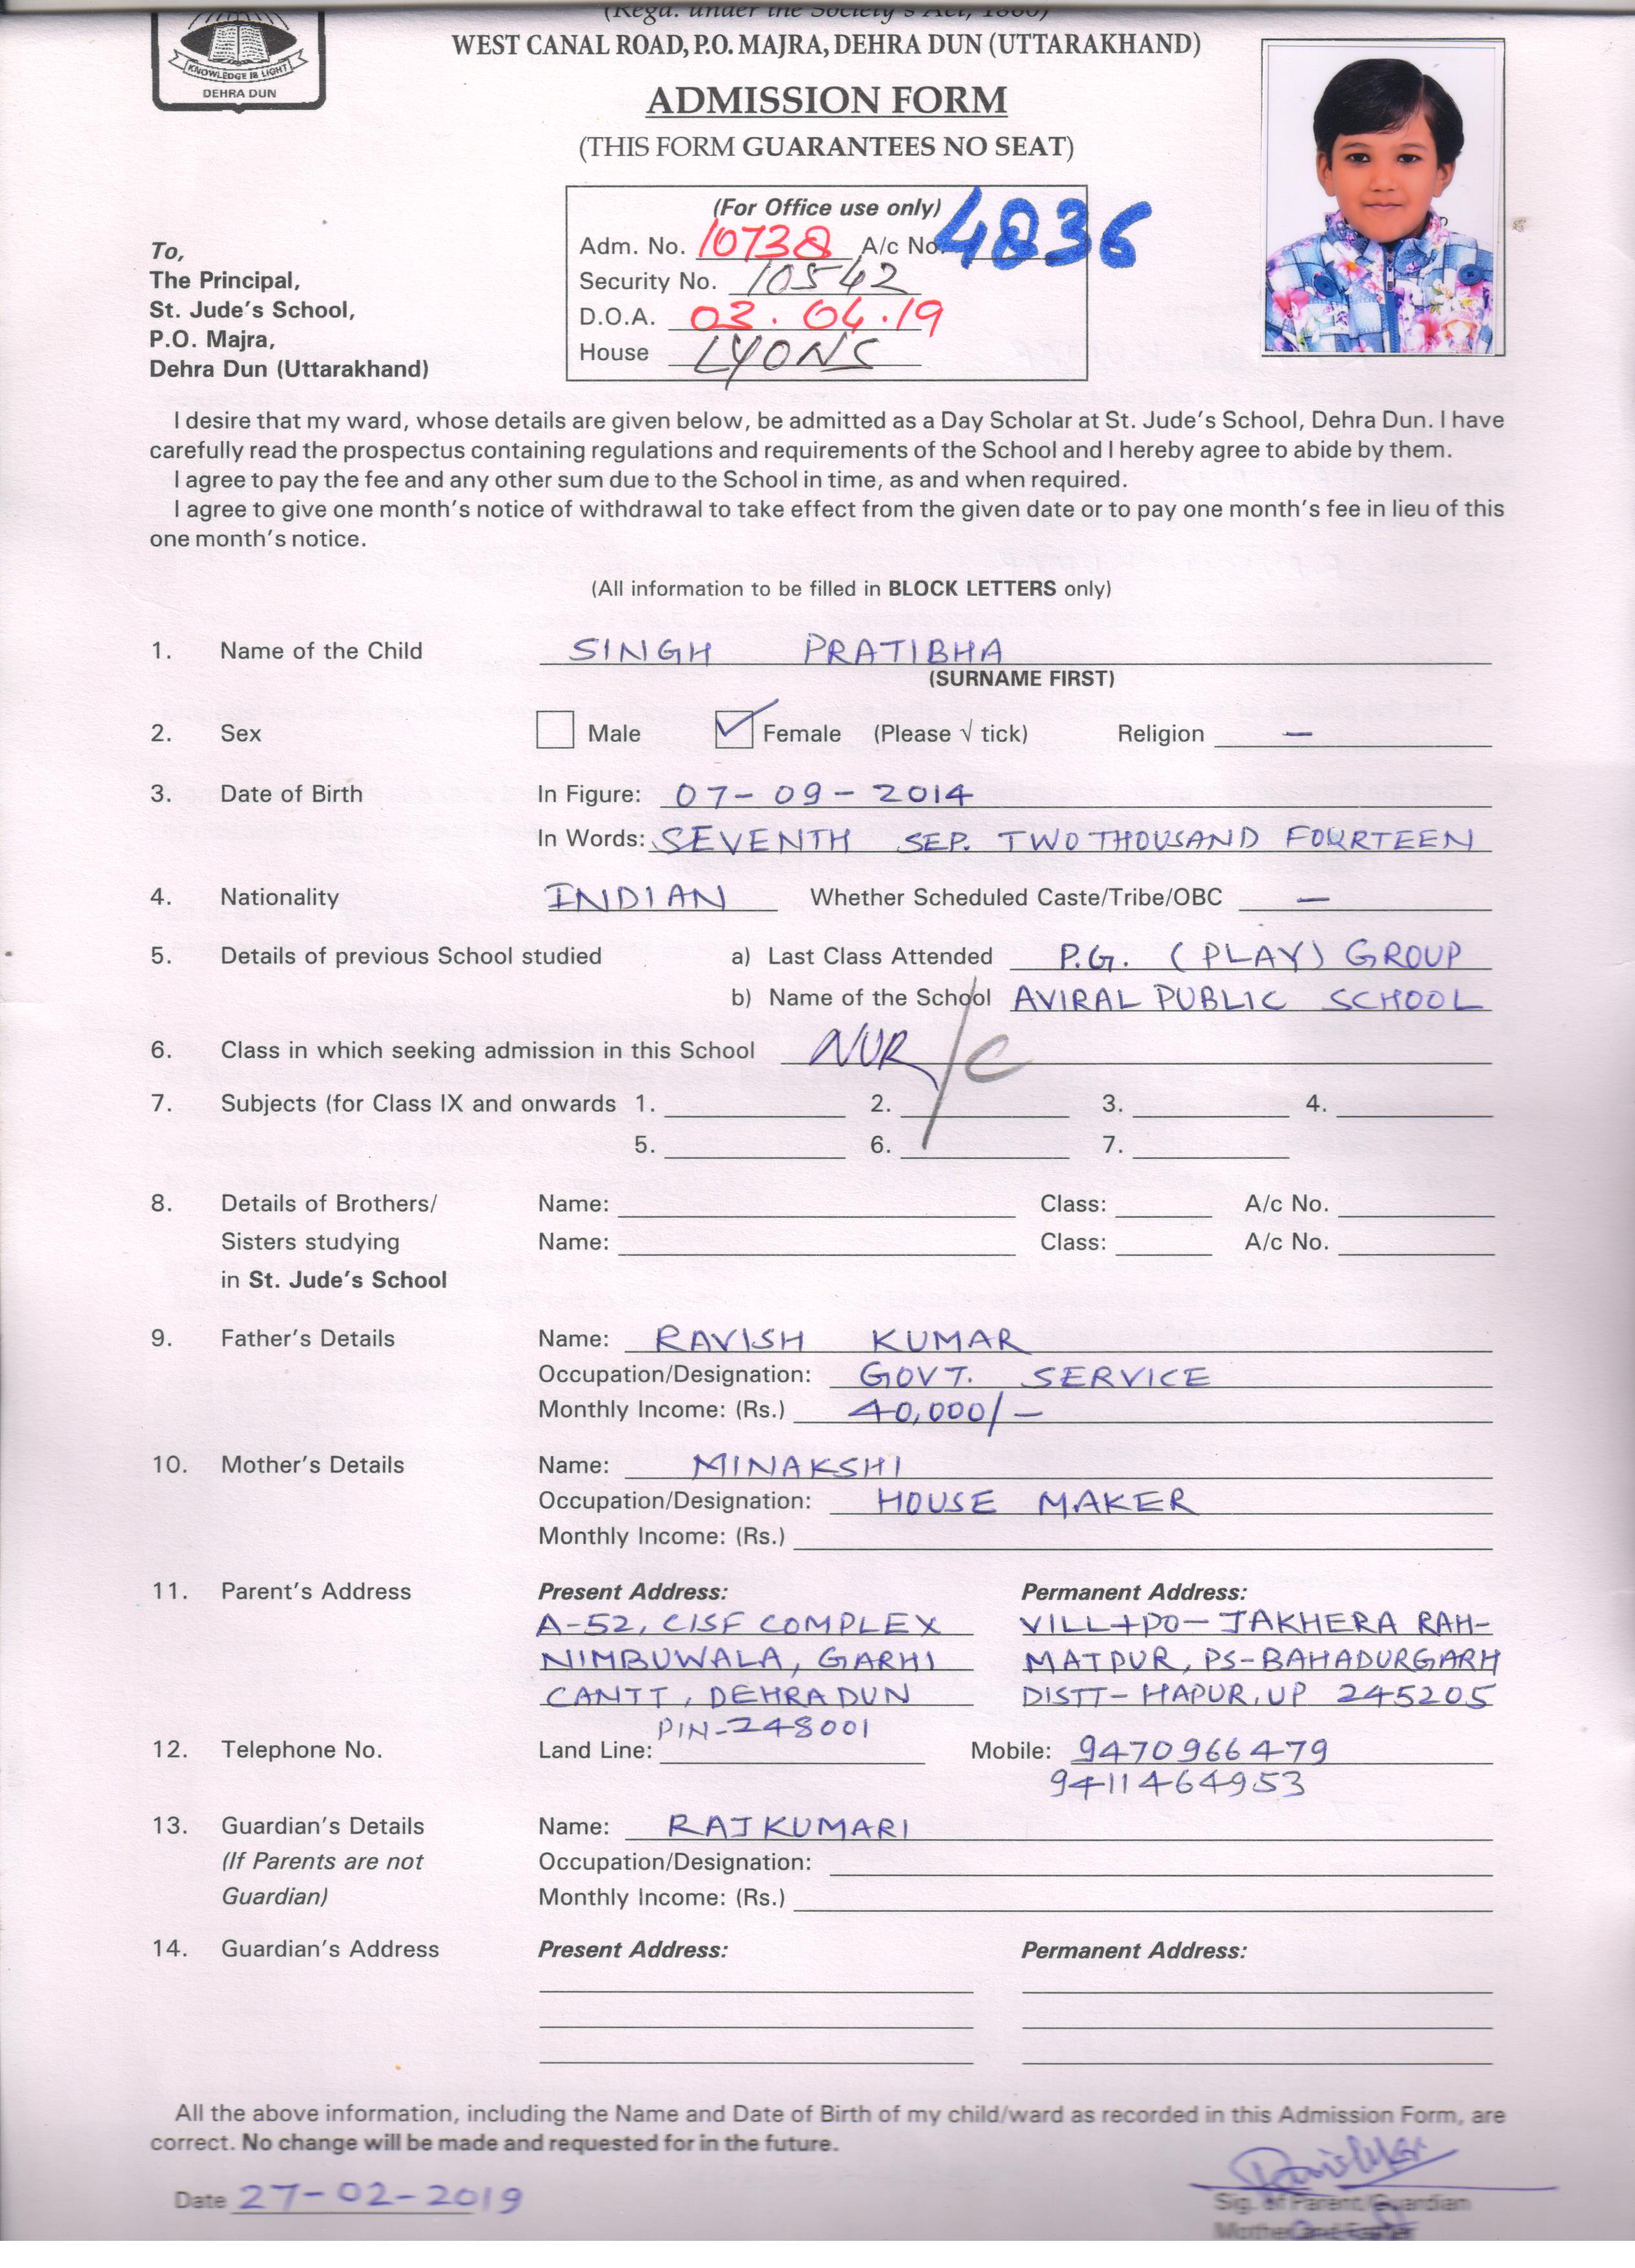 (Regd. under the Society's Act, 1860)
KNOWLEDGE IS LIGHT
DEHRA DUN
WEST CANAL ROAD, P.O. MAJRA, DEHRA DUN (UTTARAKHAND)
ADMISSION FORM
(THIS FORM GUARANTEES NO SEAT)
(For Office use only)
Adm. No. 10738 A/c No. 4836
Security No. 10542
D.O.A. 03.04.19
House LYONS
To,
The Principal,
St. Jude's School,
P.O. Majra,
Dehra Dun (Uttarakhand)
I desire that my ward, whose details are given below, be admitted as a Day Scholar at St. Jude's School, Dehra Dun. I have
carefully read the prospectus containing regulations and requirements of the School and I hereby agree to abide by them.
I agree to pay the fee and any other sum due to the School in time, as and when required.
I agree to give one month's notice of withdrawal to take effect from the given date or to pay one month's fee in lieu of this
one month's notice.
(All information to be filled in BLOCK LETTERS only)
1. Name of the Child SINGH PRATIBHA
(SURNAME FIRST)
2. Sex Male Female (Please √ tick) Religion —
3. Date of Birth In Figure: 07-09-2014
In Words: SEVENTH SEP. TWO THOUSAND FOURTEEN
4. Nationality INDIAN Whether Scheduled Caste/Tribe/OBC —
5. Details of previous School studied a) Last Class Attended P.G. (PLAY) GROUP
b) Name of the School AVIRAL PUBLIC SCHOOL
6. Class in which seeking admission in this School NUR/C
7. Subjects (for Class IX and onwards 1. 2. 3. 4.
5. 6. 7.
8. Details of Brothers/ Name: Class: A/c No.
Sisters studying Name: Class: A/c No.
in St. Jude's School
9. Father's Details Name: RAVISH KUMAR
Occupation/Designation: GOVT. SERVICE
Monthly Income: (Rs.) 40,000/-
10. Mother's Details Name: MINAKSHI
Occupation/Designation: HOUSE MAKER
Monthly Income: (Rs.)
11. Parent's Address Present Address: Permanent Address:
A-52, CISF COMPLEX VILL+PO- JAKHERA RAH-
NIMBUWALA, GARHI MATPUR, PS-BAHADURGARH
CANTT, DEHRADUN DISTT- HAPUR, UP 245205
PIN-248001
12. Telephone No. Land Line: Mobile: 9470966479
9411464953
13. Guardian's Details Name: RAJKUMARI
(If Parents are not Occupation/Designation:
Guardian) Monthly Income: (Rs.)
14. Guardian's Address Present Address: Permanent Address:
All the above information, including the Name and Date of Birth of my child/ward as recorded in this Admission Form, are
correct. No change will be made and requested for in the future.
Date 27-02-2019
Sig. of Parent/Guardian
Mother and Father